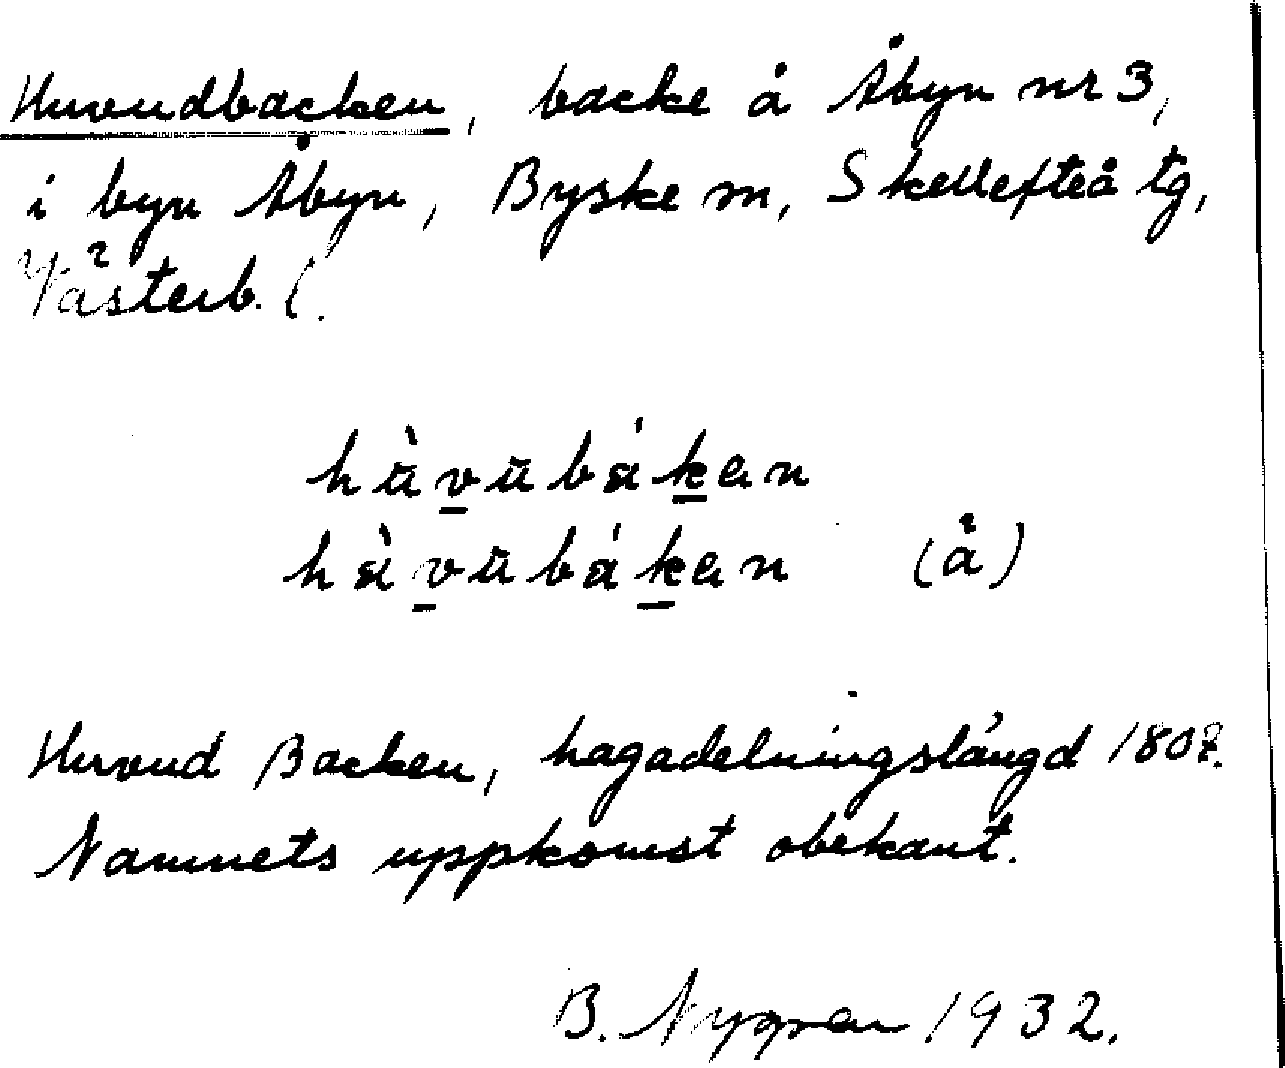 Huvudbacken, backe å Åbyn nr 3,
i byn Åbyn, Byske sn, Skellefteå tg,
Västerb. l.
hùvūbákan
hàvūbákan (å)
Huvud Backen, hagadelningslängd 180?.
Namnets uppkomst obekant.
B. Nygren 1932.